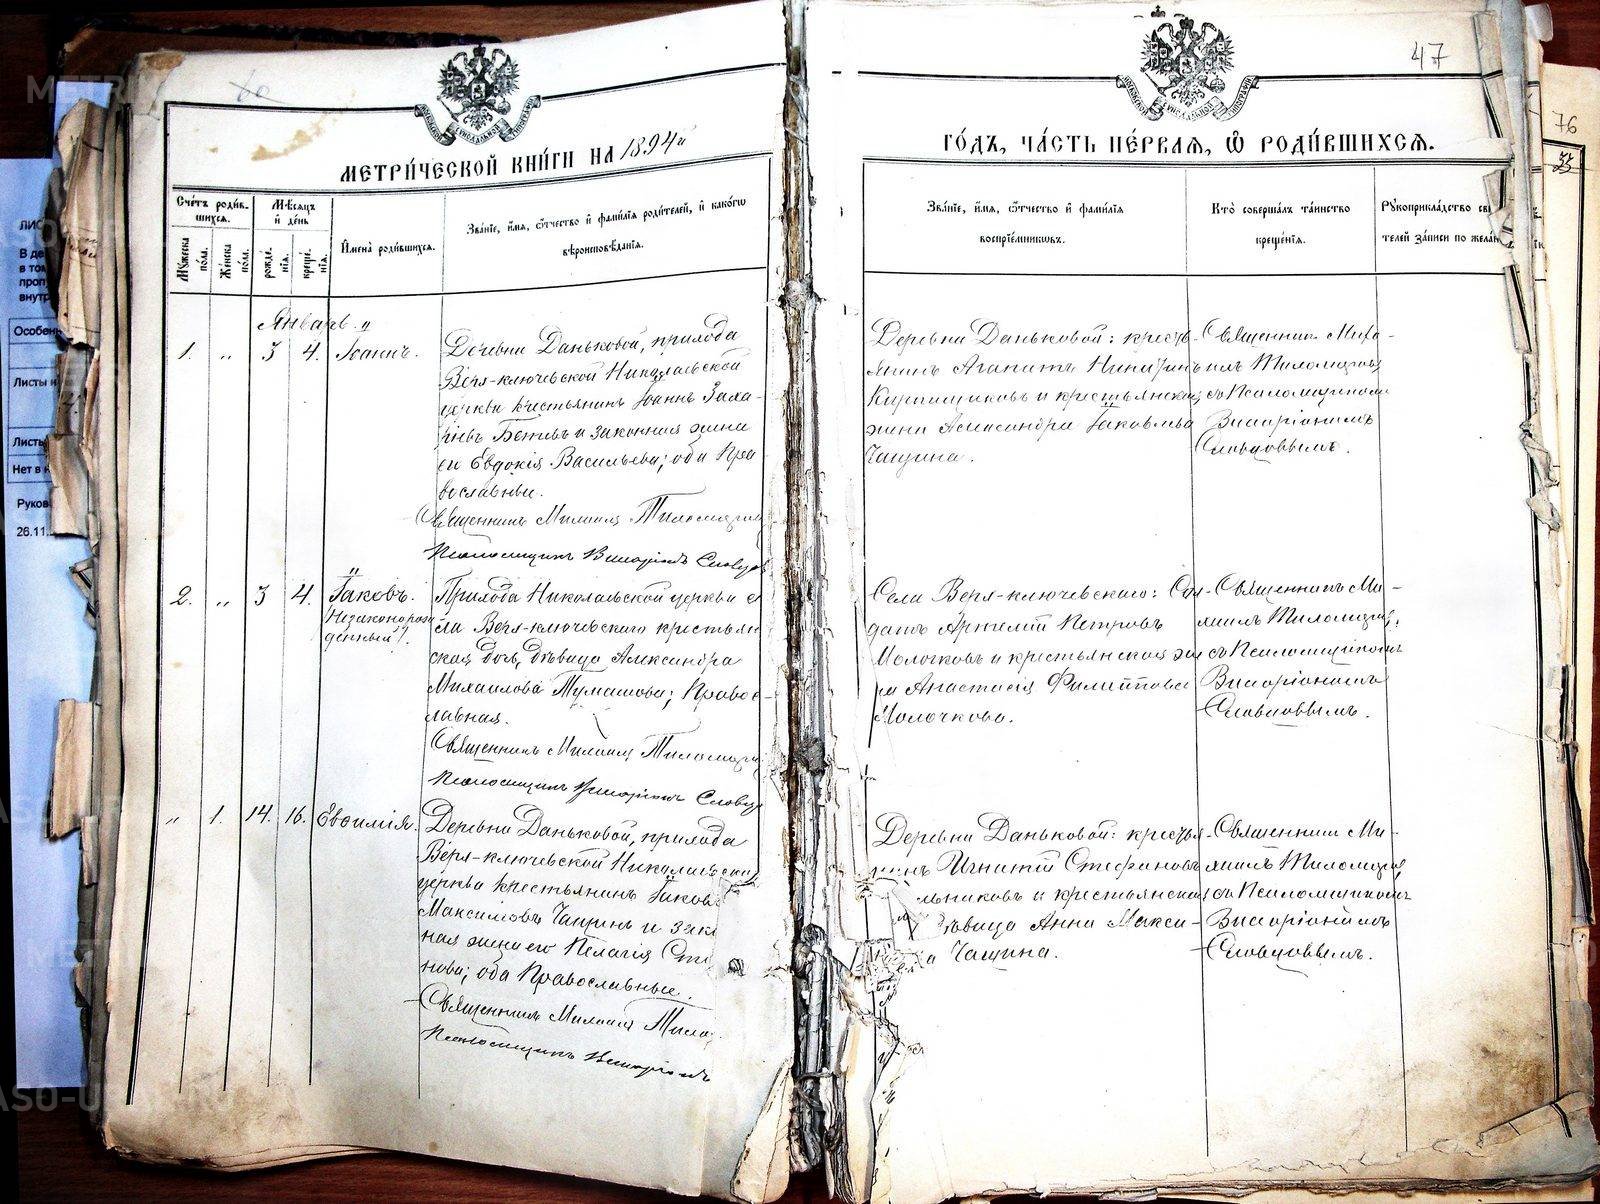 47
76
МЕТРИ́ЧЕСКОЙ КНИ́ГИ НА 1894й
ГО́ДЪ, ЧА́СТЬ ПЕ́РВАЯ, Ѽ РОДИ́ВШИХСЯ.
Сче́тъ роди́вшихся.
Му́жеска по́ла.
Же́нска по́ла.
Мѣ́сяцъ и́ де́нь
рожде́нїя.
креще́нїя.
И҆мена̀ роди́вшихся.
Зва́нїе, и҆́мя, ѻ҆́тчество и҆ фами́лїя роди́телей, и҆ како́гѡ
вѣроисповѣ́данїя.
Зва́нїе, и҆́мя, ѻ҆́тчество и҆ фами́лїя
воспрїе́мникѡвъ.
Кто̀ соверша́лъ та́инство
креще́нїя.
Рꙋкоприкла́дство
телей за́писи по жела́н
Январь.
1. „ 3 4. Іоаннъ.
Деревни Даньковой, прихода
Верх-ключевской Николаевской
церкви крестьянинъ Іоаннъ Заха-
ріевъ и законная жена
его Евдокія Васильева; оба Пра-
вославные.
Священникъ Михаилъ
Псаломщикъ Виссаріонъ Словцов
Деревни Даньковой: кресть-
янинъ Агапитъ Никитинъ
Кирпищиковъ и крестьянская
жена Александра Іаковлева
Чащина.
Священникъ Миха-
илъ Тихомировъ
съ Псаломщикомъ
Виссаріономъ
Словцовымъ.
2. „ 3 4. Іаковъ.
Незаконорож
денный.
Прихода Николаевской церкви се
ла Верх-ключевскаго крестьян
ская дочь, дѣвица Александра
Михаилова Тумашова; Правос-
лавная.
Священникъ Михаилъ
Псаломщикъ Виссаріонъ Словцо
Села Верх-ключевскаго: Сол-
датъ Артемій Петровъ
Молочковъ и крестьянская же
на Анастасія Филиппова
Молочкова.
Священникъ Ми-
хаилъ Тихомировъ
съ Псаломщикомъ
Виссаріономъ
Словцовымъ.
„ 1. 14. 16. Евѳимія.
Деревни Даньковой, прихода
Верх-ключевской Николаевской
церкви крестьянинъ Іаковъ
Максимовъ Чащинъ и зако
ная жена его Пелагія
нова; оба Православные.
Священникъ Михаилъ Тихо
Псаломщикъ Виссаріонъ
Деревни Даньковой: крестья-
нинъ Игнатій Стефановъ
льниковъ и крестьянская
дѣвица Анна Макси-
а Чащина.
Священникъ Ми-
хаилъ Тихомировъ
съ Псаломщикомъ
Виссаріономъ
Словцовымъ.
Особенн
Листы
Листь
Нет в н
Руков
26.11.